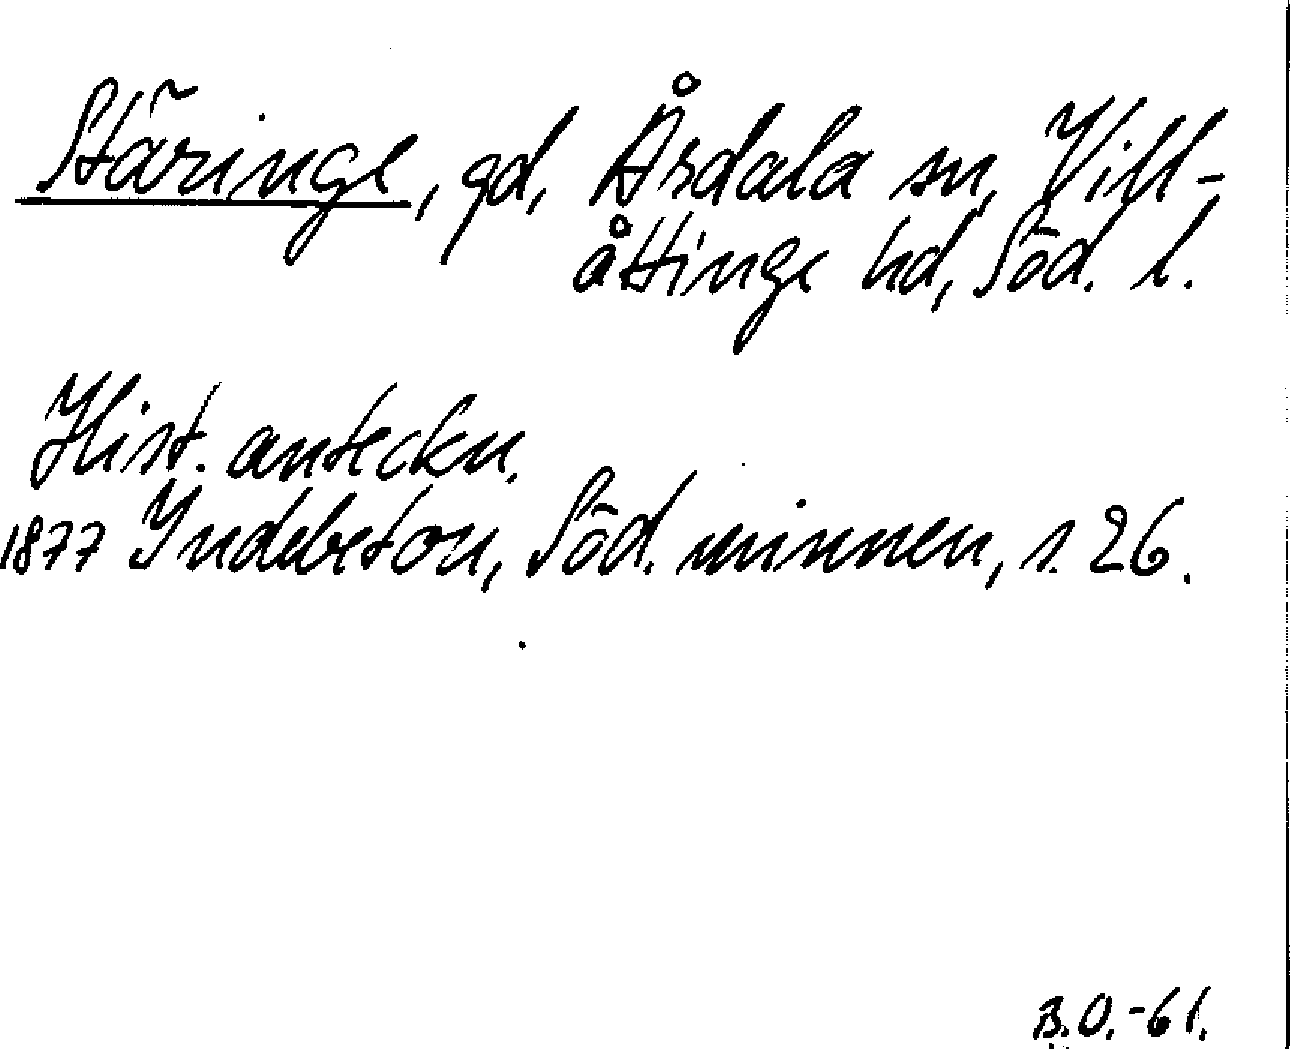 Stäringe, gd, Årdala sn, Vill-
åttinge hd, Söd. l.
Hist. anteckn.
1877 Indebetou, Söd. minnen, s. 26.
B.O.-61.